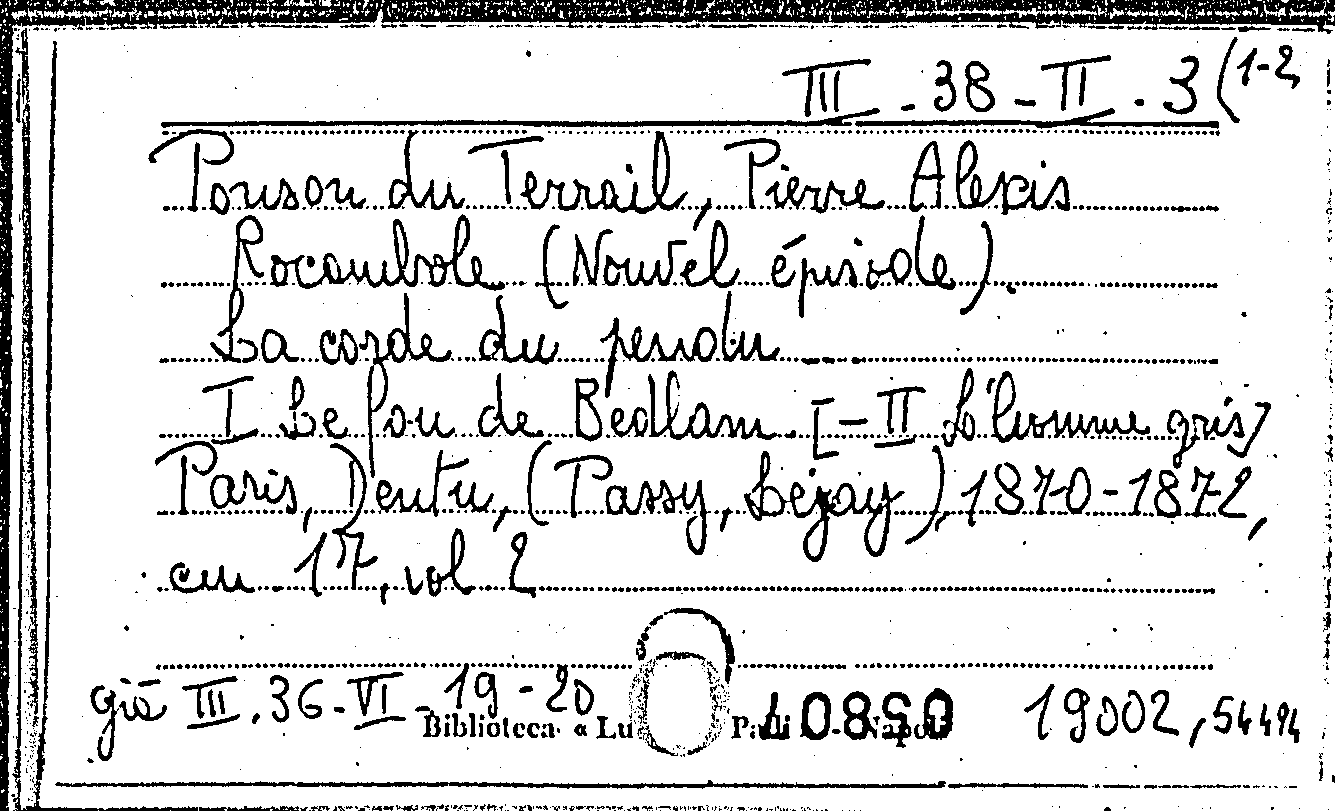 III - 38 - II . 3 (1-2
Ponson du Terrail, Pierre Alexis
Rocambole (Nouvel épisode).
La corde du pendu ...
I Le fou de Bedlam. [- II L'homme gris]
Paris, Dentu, (Passy, Lejay), 1870-1872,
cm 17, vol 2
già III.36-VI-19-20
Biblioteca « Lu Pauli - Napoli
19002, 54494